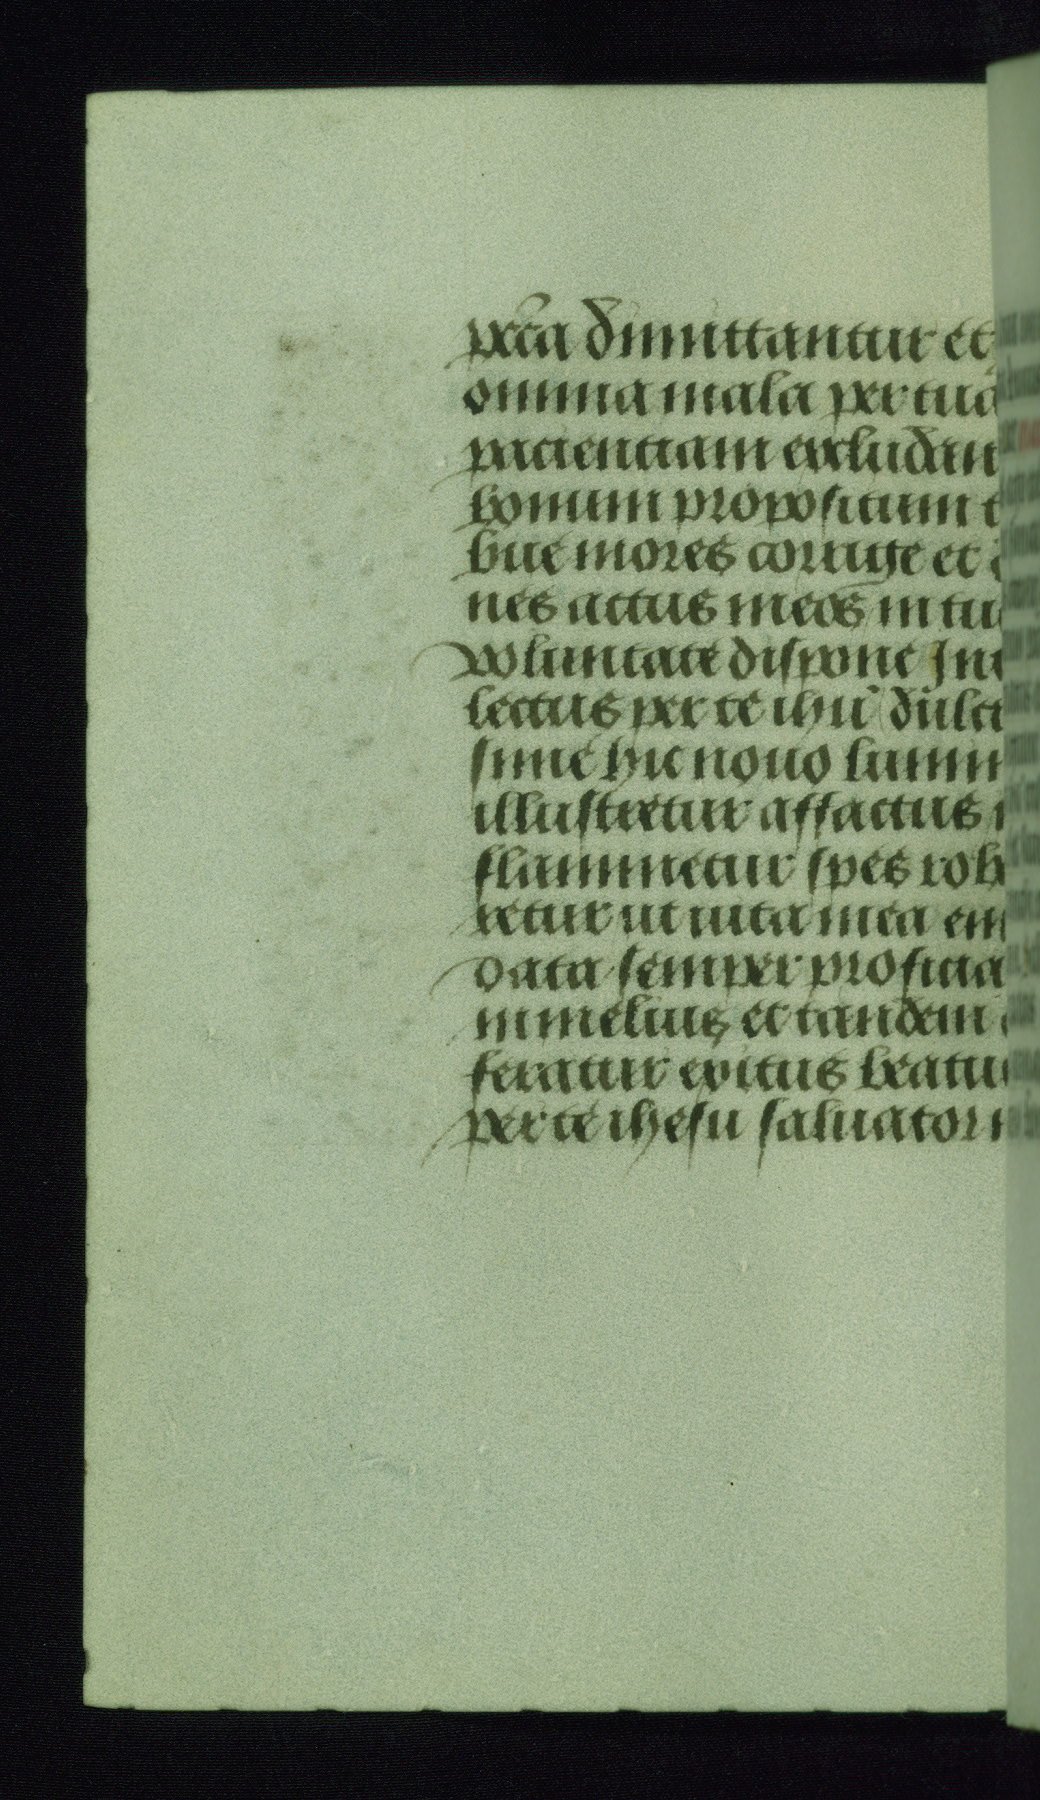 pctã dimittantur et
omnia mala per tuã
pacientiam excludan
bonum propositum t
bue mores corrige et
nes actus meos in tu
voluntate dispone Int
lectus per te ihu dulci
sime hic nouo lumin
illustretur affactus
flammetur spes rob
retur ut uita mea em
data semper proficia
in melius et tandem
feratur exitus beatu
per te ihesu saluator